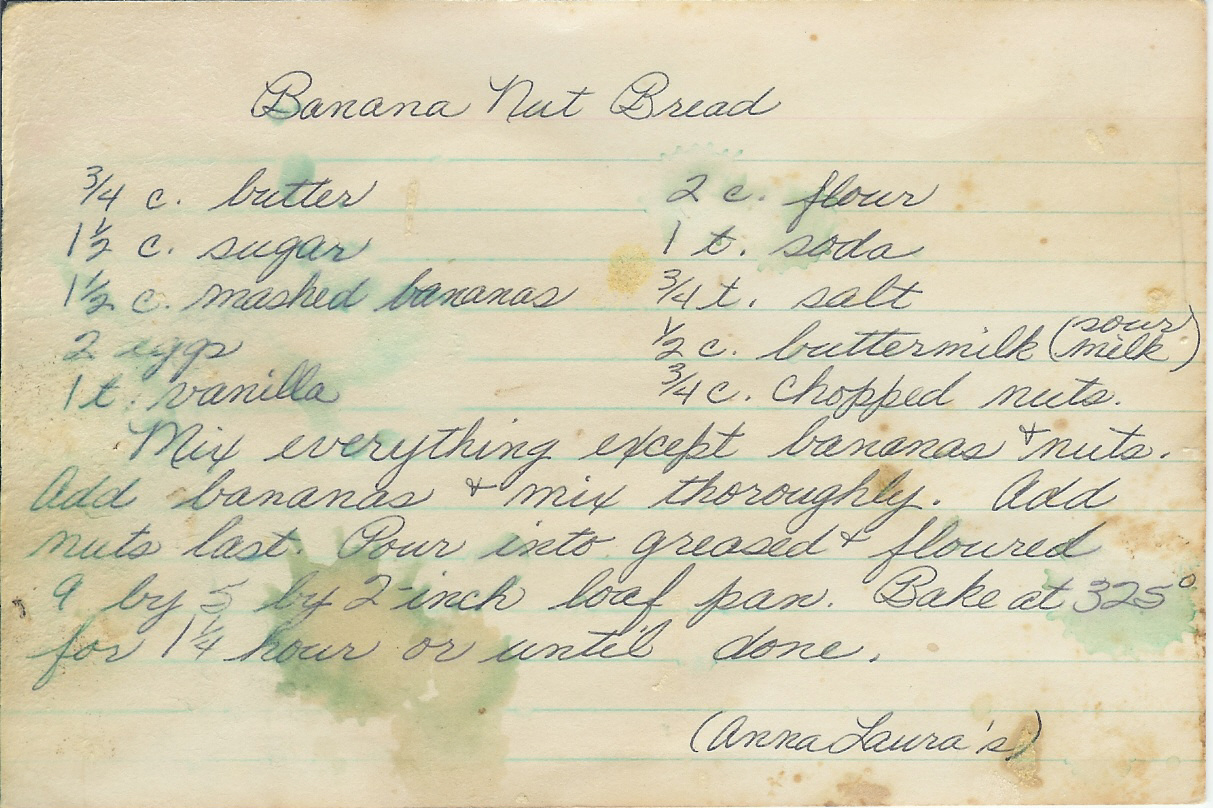 Banana Nut Bread
3/4 c. butter
1 1/2 c. sugar
1 1/2 c. mashed bananas
2 eggs
1 t. vanilla
2 c. flour
1 t. soda
3/4 t. salt
1/2 c. buttermilk (sour milk)
3/4 c. chopped nuts.
Mix everything except bananas & nuts.
Add bananas & mix thoroughly. Add
nuts last. Pour into greased & floured
9 by 5 by 2-inch loaf pan. Bake at 325°
for 1 1/4 hour or until done.
(Anna Laura's)